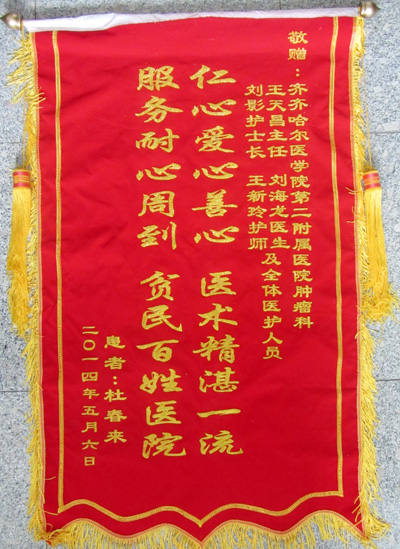 敬赠：齐齐哈尔医学院第二附属医院肿瘤科
王天昌主任 刘海龙医生及全体医护人员
刘影护士长 王新玲护师
仁心爱心善心 医术精湛一流
服务耐心周到 贫民百姓医院
患者：杜春来
二〇一四年五月六日